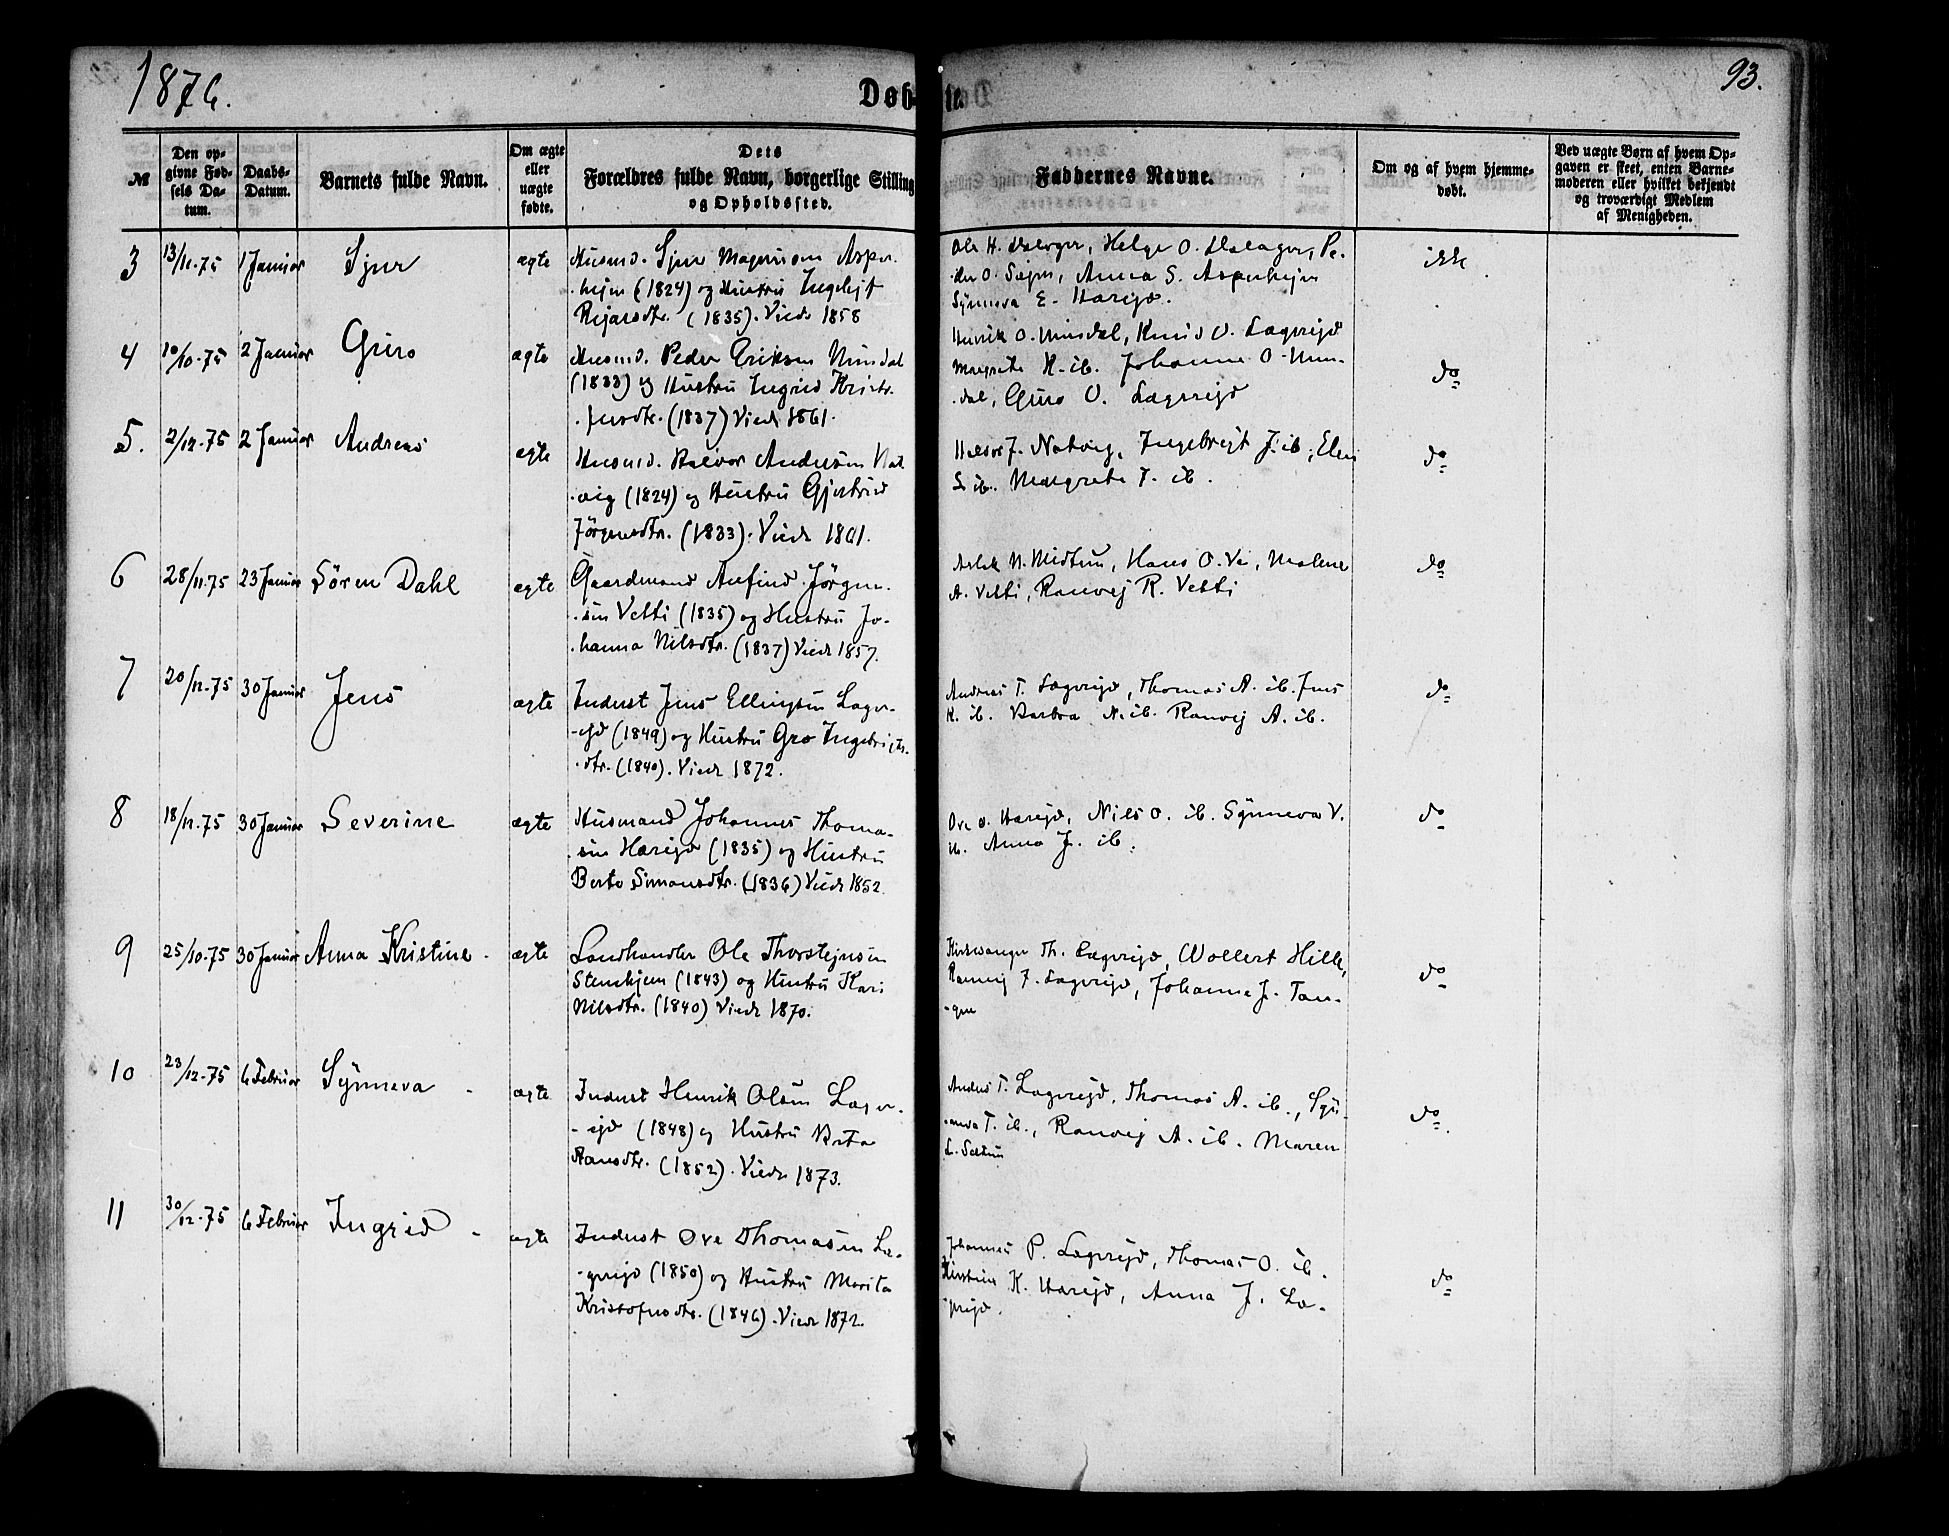 1876.
Døbte.
93.
№
Den opgivne Fødsels Datum.
Daabs-Datum.
Barnets fulde Navn.
Om ægte eller uægte fødte.
Dets Forældres fulde Navn, borgerlige Stilling og Opholdssted.
Faddernes Navne.
Om og af hvem hjemmedøbt.
Ved uægte Børn af hvem Opgaven er skeet, enten Barnemoderen eller hvilket bekjendt og troværdigt Medlem af Menigheden.
3 13/11.75 1 Januar Sjur ægte Husmd. Sjur Magnusen Asper-
hejm (1824) og Hustru Ingelejf
Rejarsdtr. (1835). Viede 1858
Ole H. Halager, Helge O. Halager, Pe-
der O. Anna S. Asperhejm
Synneva E. Harejde.
ikke
4 10/10.75 2 Januar Guro ægte Husmd. Peder Eriksen Mundal
(1833) og Hustru Ingrid Kristo-
fersdtr. (1837) Viede 1861.
Henrik O. Mundal, Knud O. Lægrejd
Margrete K. ib. Johanne O. Mun-
dal, Guro O. Lægrejd
do
5. 2/12.75 2 Januar Andreas ægte Husmd. Halvor Andersen Nat-
vig (1824) og Hustru Gjertrud
Jørgensdtr. (1833). Viede 1861.
Halvor J. Natvig, Ingebrigt J. ib, Elen
S. ib. Margrete J. ib.
do
6 28/11.75 23 Januar Søren Dahl ægte Gaardmand Anfind Jørgen-
sen Vetti (1835) og Hustru Jo-
hanna Nilsdtr. (1837) Viede 1857.
Aslak N. Midtun, Hans O. Ve, Malene
A. Vetti, Ranvej R. Vetti
do
7 20/12.75 30 Januar Jens ægte Inderst Jens Ellingsen Læger-
ejd (1849) og Hustru Gro Ingebrigts-
dtr. (1840). Viede 1872.
Andreas T. Lægrejd, Thomas A. ib. Jens
K. ib. Barbra N. ib. Ranvej A. ib.
do
8 18/12.75 30 Januar Severine ægte Husmand Johannes Thoma-
sen Harejde (1835) og Hustru
Berte Simonsdtr. (1836) Viede 1852.
Ove O. Harejde, Nils O. ib. Synneva V.
ib. Anna J. ib.
do
9 25/10.75 30 Januar Anna Kristine ægte Landhandler Ole Thorstejnsen
Stenhjem (1843) og Hustru Kari
Nilsdtr. (1840) Viede 1870.
Kirkesanger Th. Lægrejd, Wollert Hille,
Ranvej J. Lægrejd, Johanne J. Tan-
gen
do
10 23/12.75 6 Februar Synneva ægte Inderst Henrik Olsen Læger-
ejd (1848) og Hustru Brita
Hansdtr. (1852). Viede 1873.
Anders T. Lægrejd, Thomas A. ib., Syn-
neva T. ib., Ranvej A. ib. Maren
L. Seltun
do
11 30/12.75 6 Februar Ingrid ægte Inderst Ove Thomasen Læ-
grejd (1850) og Hustru Marita
Kristofersdtr. (1846). Viede 1872.
Johannes P. Lægrejd, Thomas O. ib.
Kirstine K. Harejde, Anna J. Læ-
grejd.
do